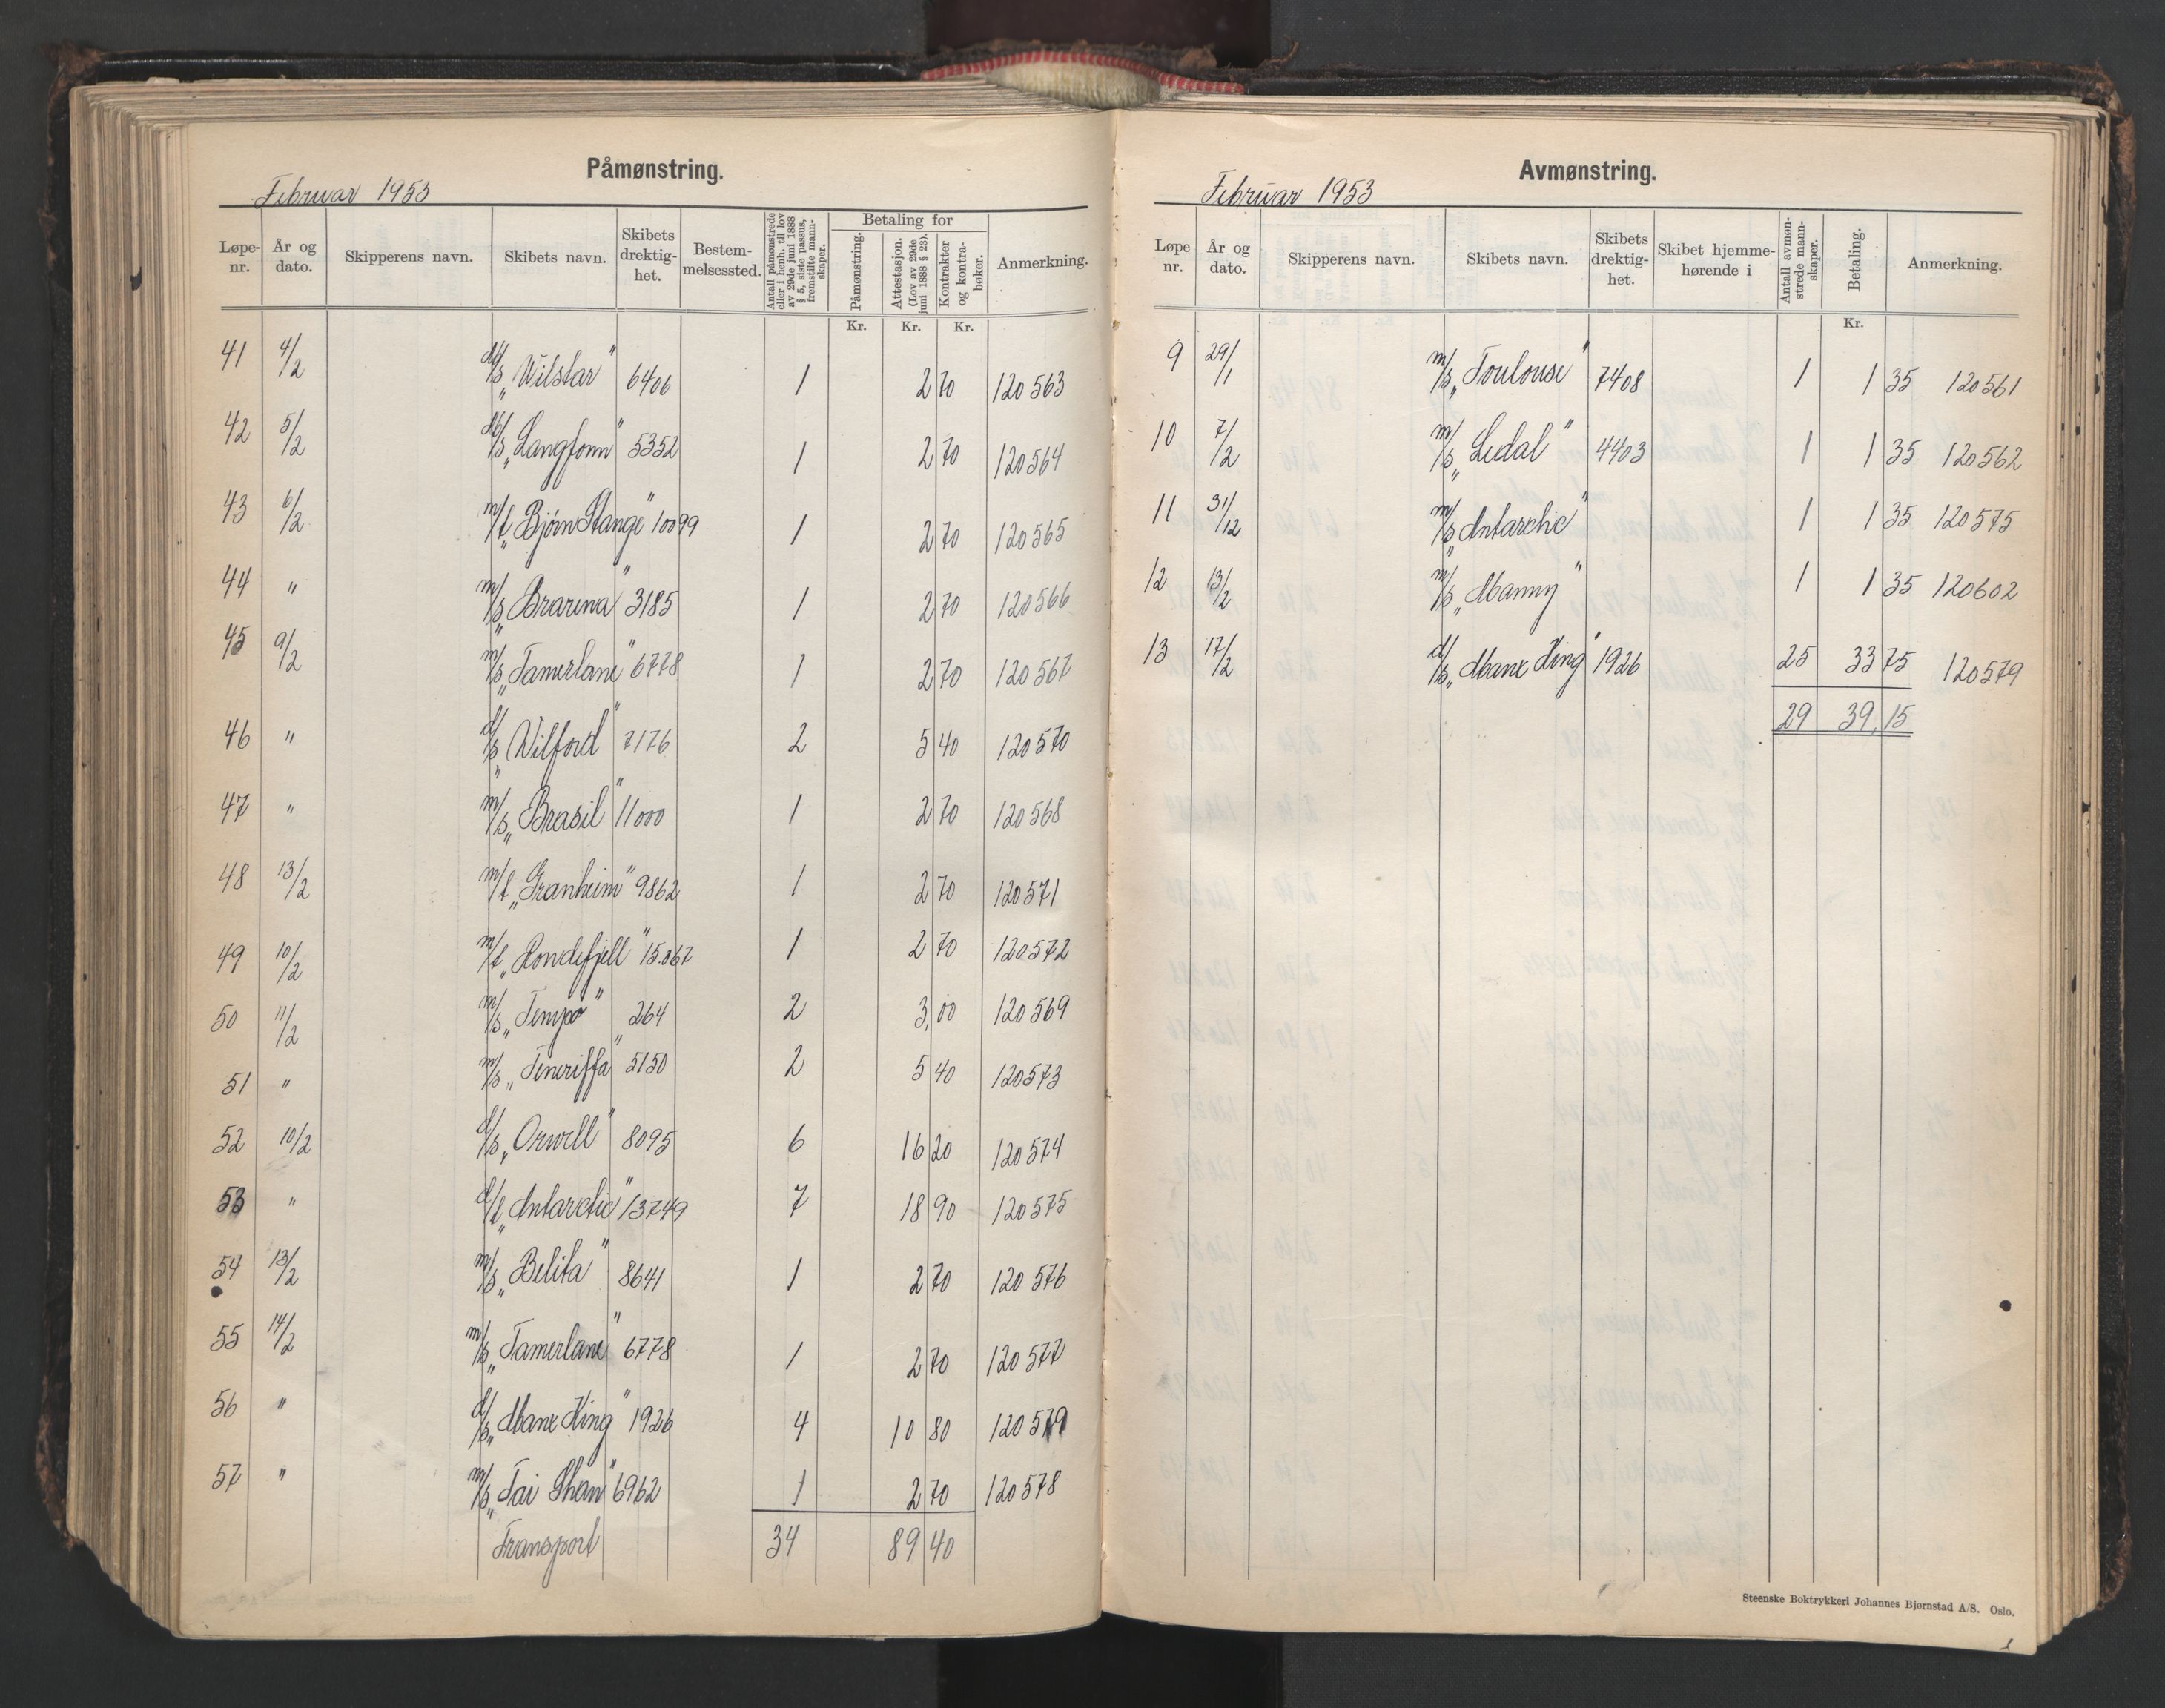 Påmønstring.
Februar 1953
Løpe-nr. | År og dato. | Skipperens navn. | Skibets navn. | Skibets drektig-het. | Bestem-melsessted. | Antall påmønstrede eller i henh. til lov av 29de juni 1888 § 5, siste passus, fremstilte mann-skaper. | Betaling for | Påmønstring. | Attestasjon. (Lov av 29de juni 1888 § 23). | Kontrakter og kontra-bøker. | Anmerkning.
Kr. Kr. Kr.
41 4/2 "Wilstar" 6406 1 2 70 120563
42 5/2 "Langfonn" 5352 1 2 70 120564
43 6/2 m/t "Bjørn Stange" 10099 1 2 70 120565
44 " m/s "Brarena" 3185 1 2 70 120566
45 9/2 m/s "Tamerlane" 6778 1 2 70 120567
46 " d/s "Wilford" 7176 2 5 40 120570
47 " m/s "Brasil" 11000 1 2 70 120568
48 13/2 m/t "Granheim" 9862 1 2 70 120571
49 10/2 m/t "Rondefjell" 15.067 1 2 70 120572
50 11/2 m/s "Tempo" 264 2 3,00 120569
51 " m/s "Teneriffa" 5150 2 5 40 120573
52 10/2 d/s "Orwell" 8095 6 16 20 120574
53 " d/t "Antarctic" 13749 7 18 90 120575
54 13/2 m/s "Belita" 8641 1 2 70 120576
55 14/2 m/s "Tamerlane" 6778 1 2 70 120577
56 " d/s "Manx King" 1926 4 10 80 120579
57 " m/s "Tai Shan" 6962 1 2 70 120578
Transport 34 89 40
Avmønstring.
Februar 1953
Løpe nr. | År og dato. | Skipperens navn. | Skibets navn. | Skibets drektig-het. | Skibet hjemme-hørende i | Antall avmøn-strede mann-skaper. | Betaling. | Anmerkning.
Kr.
9 29/1 m/s "Toulouse" 7408 1 1 35 120561
10 7/2 m/s "Ledal" 4403 1 1 35 120562
11 31/12 m/s "Antarctic" 1 1 35 120575
12 13/2 m/s "Manny" 1 1 35 120602
13 17/2 d/s "Manx King" 1926 25 33 75 120579
29 39,15
Steenske Boktrykkeri Johannes Bjørnstad A/S. Oslo.